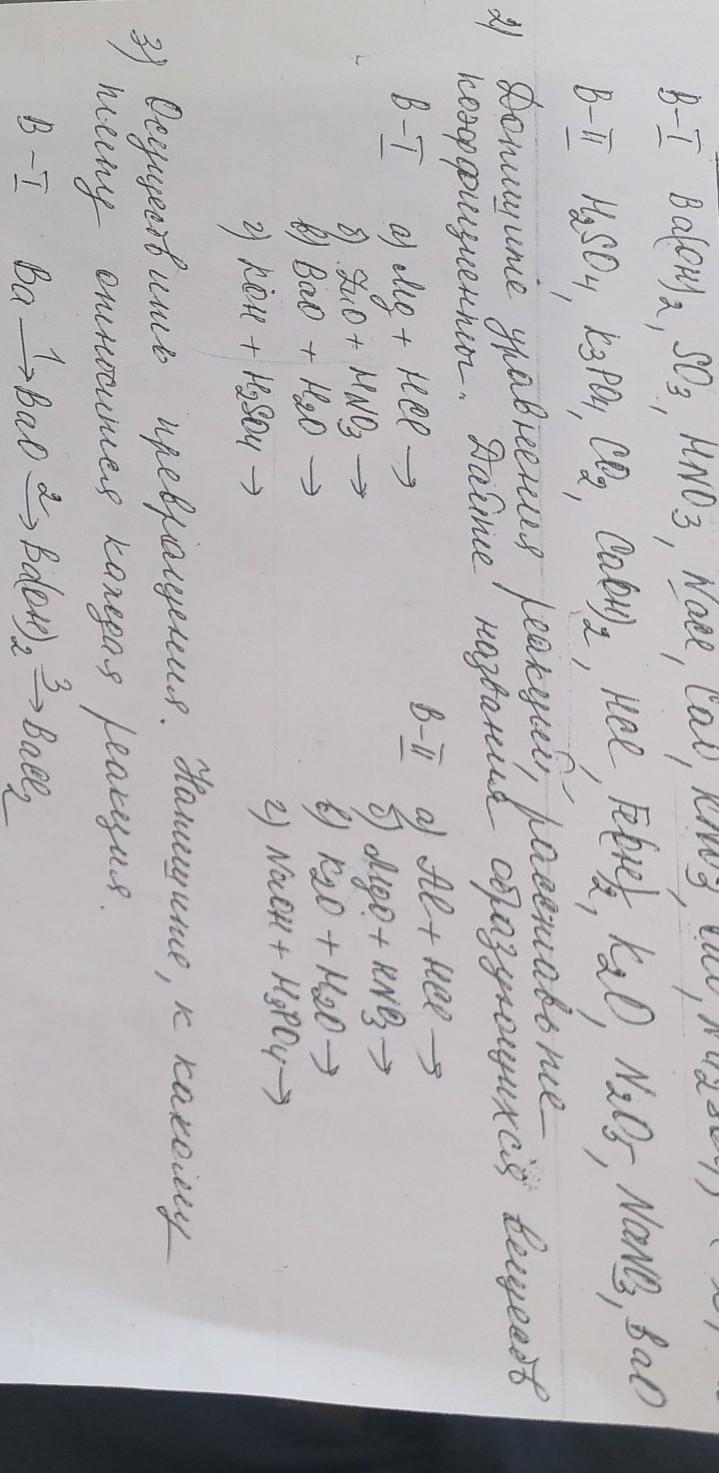 В-I Ba(OH)2, SO3, HNO3, NaCl, CaO, KNO3,
В-II H2SO4, K3PO4, CO2, Ca(OH)2, HCl, Fe(OH)2, K2O, N2O5, NaNO3, BaO
2) Допишите уравнения реакций, расставьте
коэффициенты. Дайте названия образующихся веществ
В-I а) Mg + HCl →
б) ZnO + HNO3 →
в) BaO + H2O →
г) KOH + H2SO4 →
В-II а) Al + HCl →
б) MgO + HNO3 →
в) K2O + H2O →
г) NaOH + H3PO4 →
3) Осуществить превращения. Напишите, к какому
типу относится каждая реакция.
В-I Ba 1→ BaO 2→ Ba(OH)2 3→ BaCl2